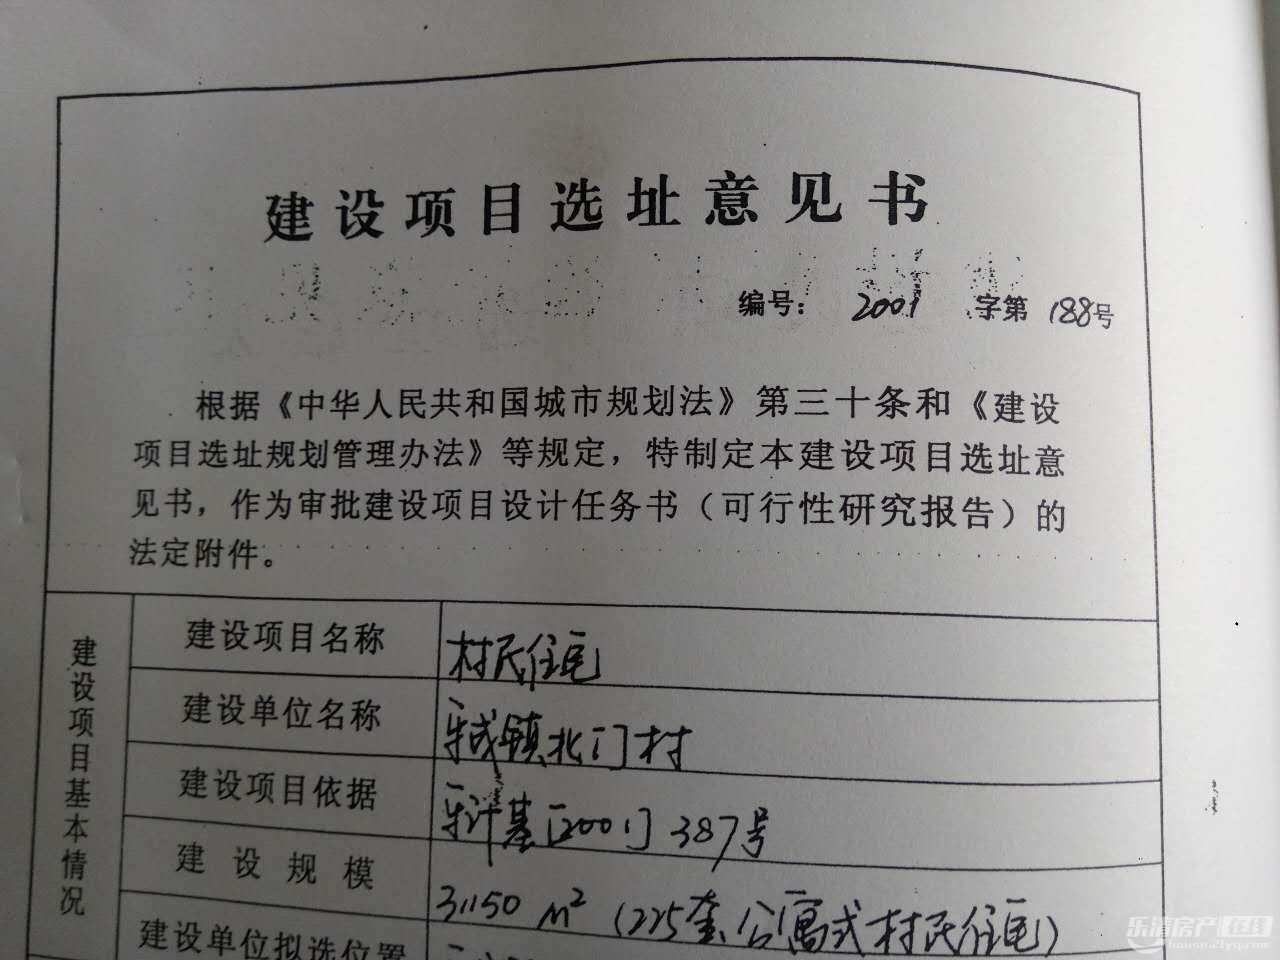 建设项目选址意见书
编号: 2001 字第 188号
根据《中华人民共和国城市规划法》第三十条和《建设
项目选址规划管理办法》等规定，特制定本建设项目选址意
见书，作为审批建设项目设计任务书（可行性研究报告）的
法定附件。
建设项目基本情况
建设项目名称 村民住宅
建设单位名称 乐成镇北门村
建设项目依据 乐计基[2001] 387号
建设规模 31150 m² (225套公寓式村民住宅)
建设单位拟选位置
乐清房产在线
house.21yq.com